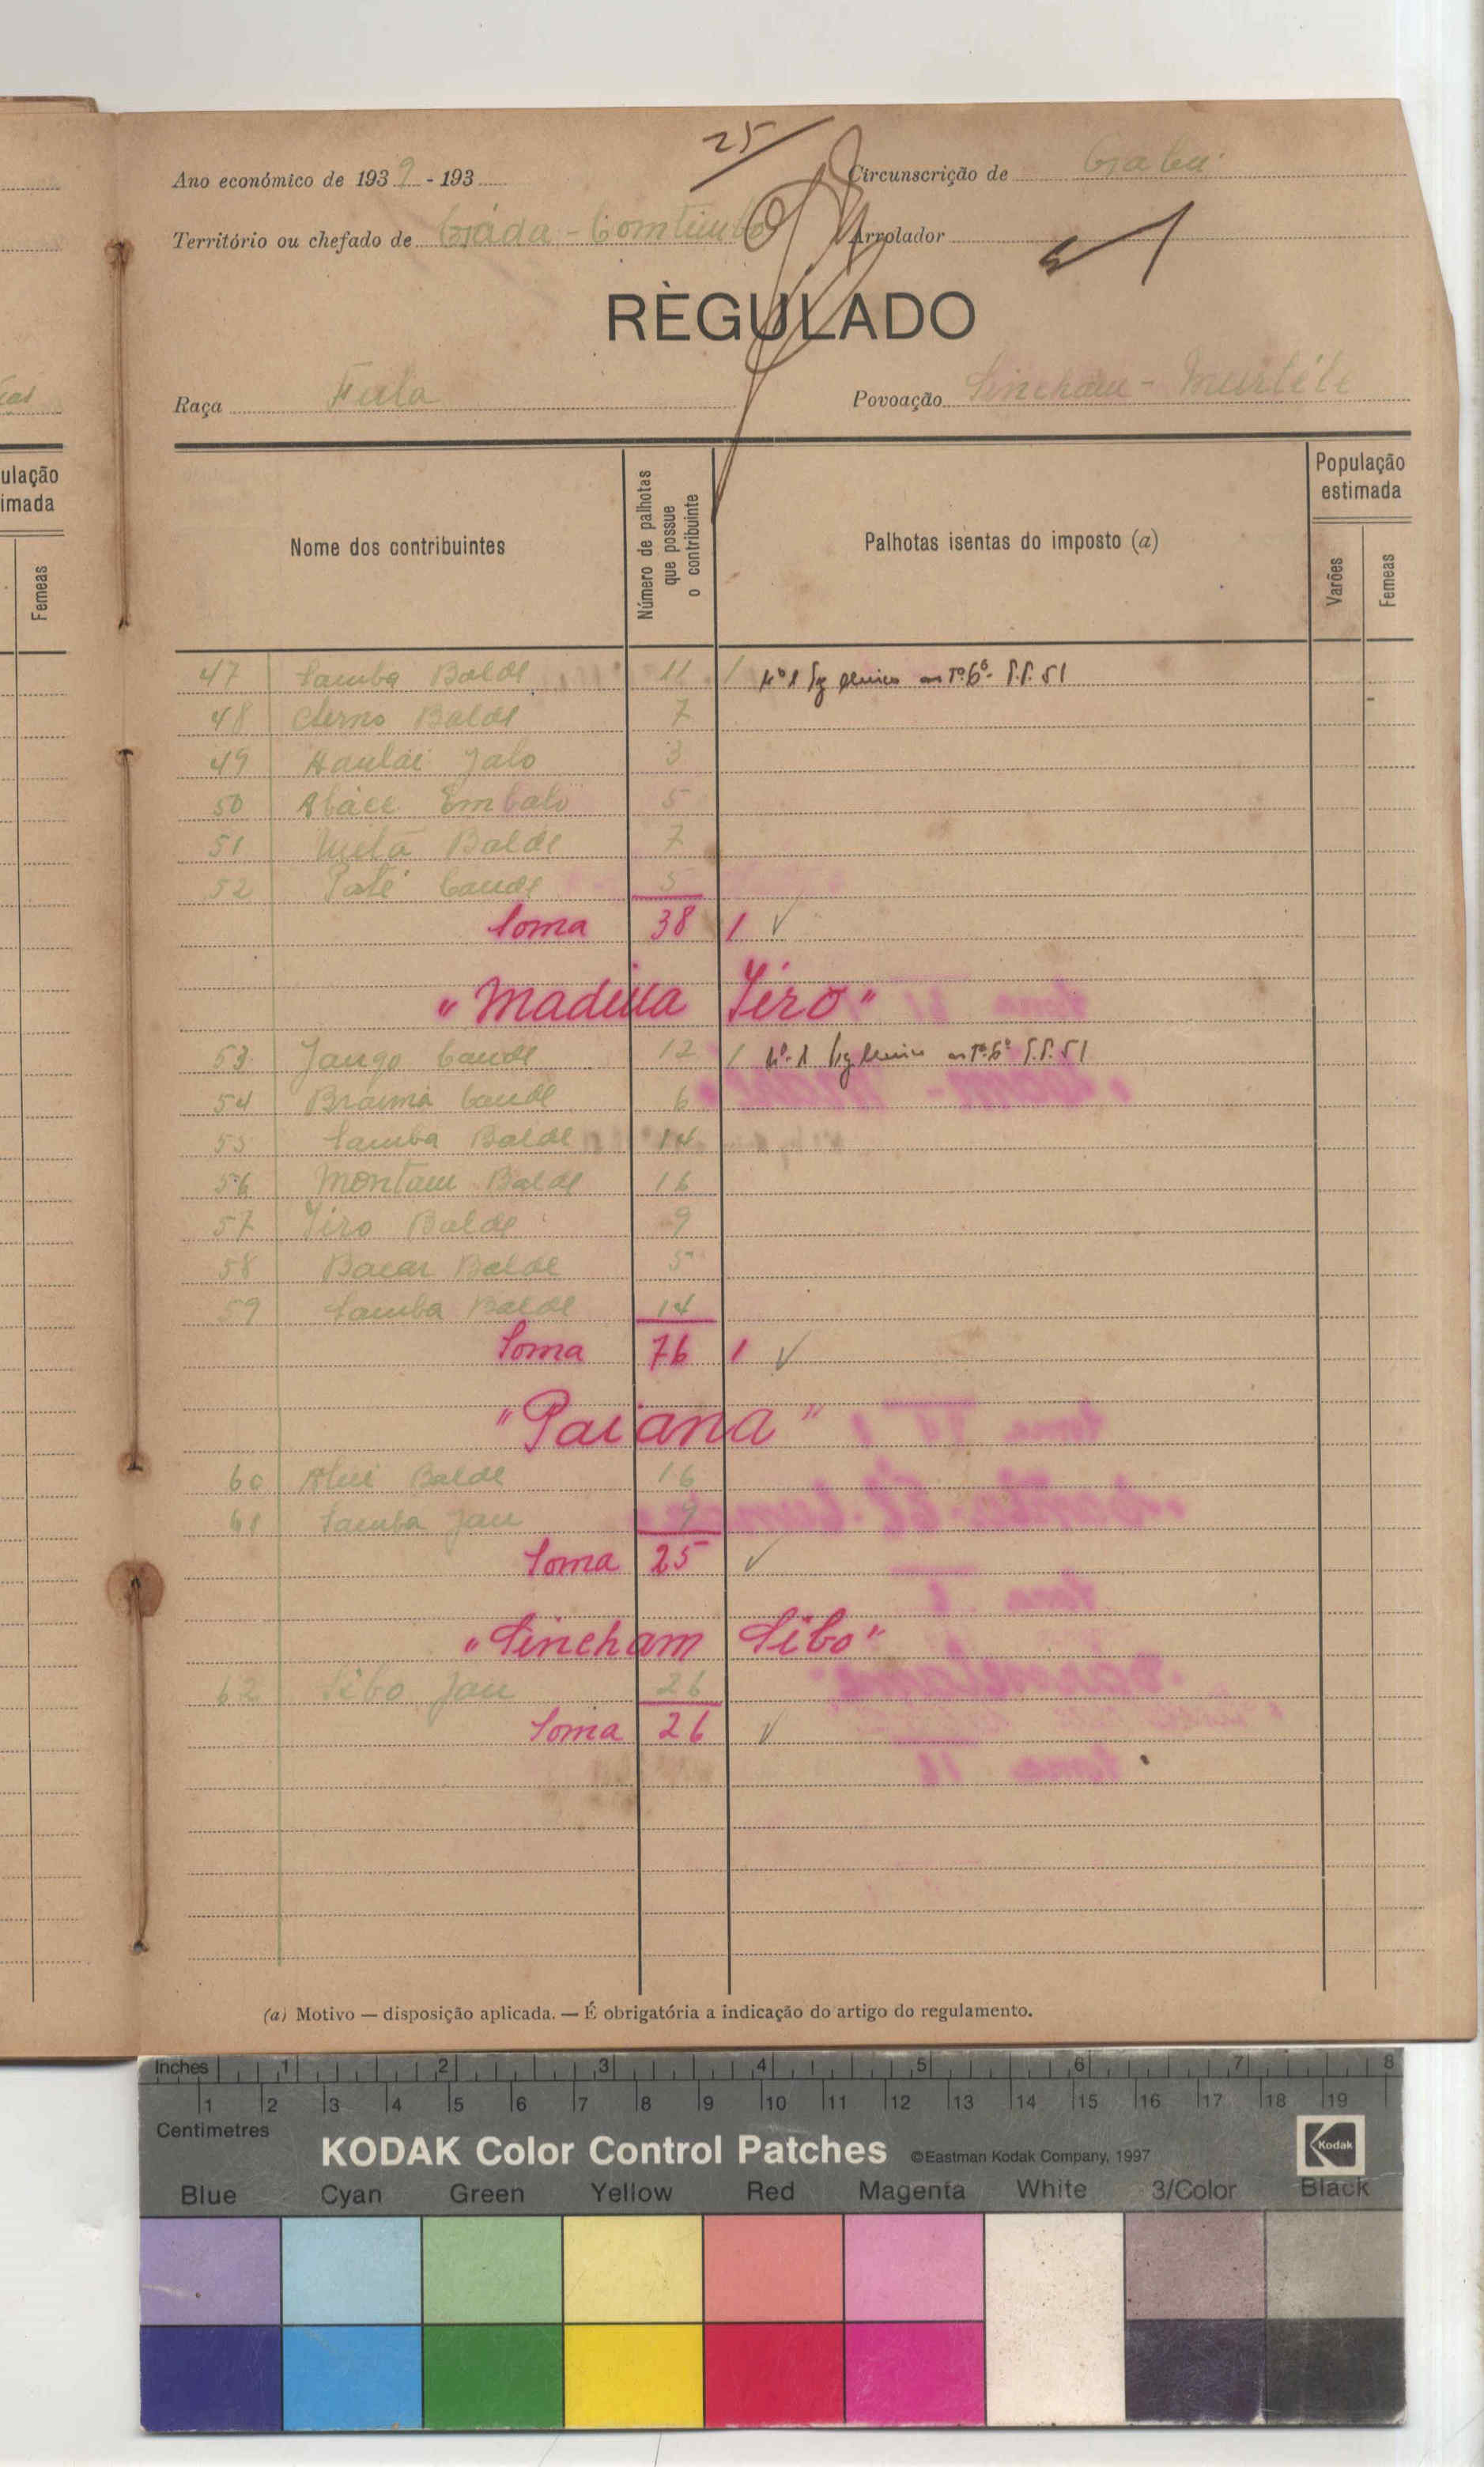 25
Ano económico de 1939 - 193
Circunscrição de Gabu
Território ou chefado de Gáda - 
Arrolador
RÈGULADO
Raça Fula
Povoação Sincham -
Nome dos contribuintes
Número de palhotas que possue o contribuinte
Palhotas isentas do imposto (a)
População estimada
Varões
Femeas
47 Samba Balde 11 1 Nº 1
48 Cherno Balde 7
49 Jalo 3
50 Embaló 5
51 Balde 7
52 Paté Cande 5
Soma 38 1
"Madina Iéro"
53 Jango Cande 12 1 Nº 1
54 Braima Cande 6
55 Samba Balde 14
56 Montam Balde 16
57 Iéro Balde 9
58 Bacar Balde 5
59 Samba Balde 14
Soma 76 1
"Paiana"
60 Balde 16
61 Samba Jau 9
Soma 25
"Sincham Sibo"
62 Sibo Jau 26
Soma 26
(a) Motivo — disposição aplicada. — É obrigatória a indicação do artigo do regulamento.
ulação
imada
Femeas
Inches 1 2 3 4 5 6 7 8
1 2 3 4 5 6 7 8 9 10 11 12 13 14 15 16 17 18 19
Centimetres
KODAK Color Control Patches ©Eastman Kodak Company, 1997
Kodak
Blue Cyan Green Yellow Red Magenta White 3/Color Black